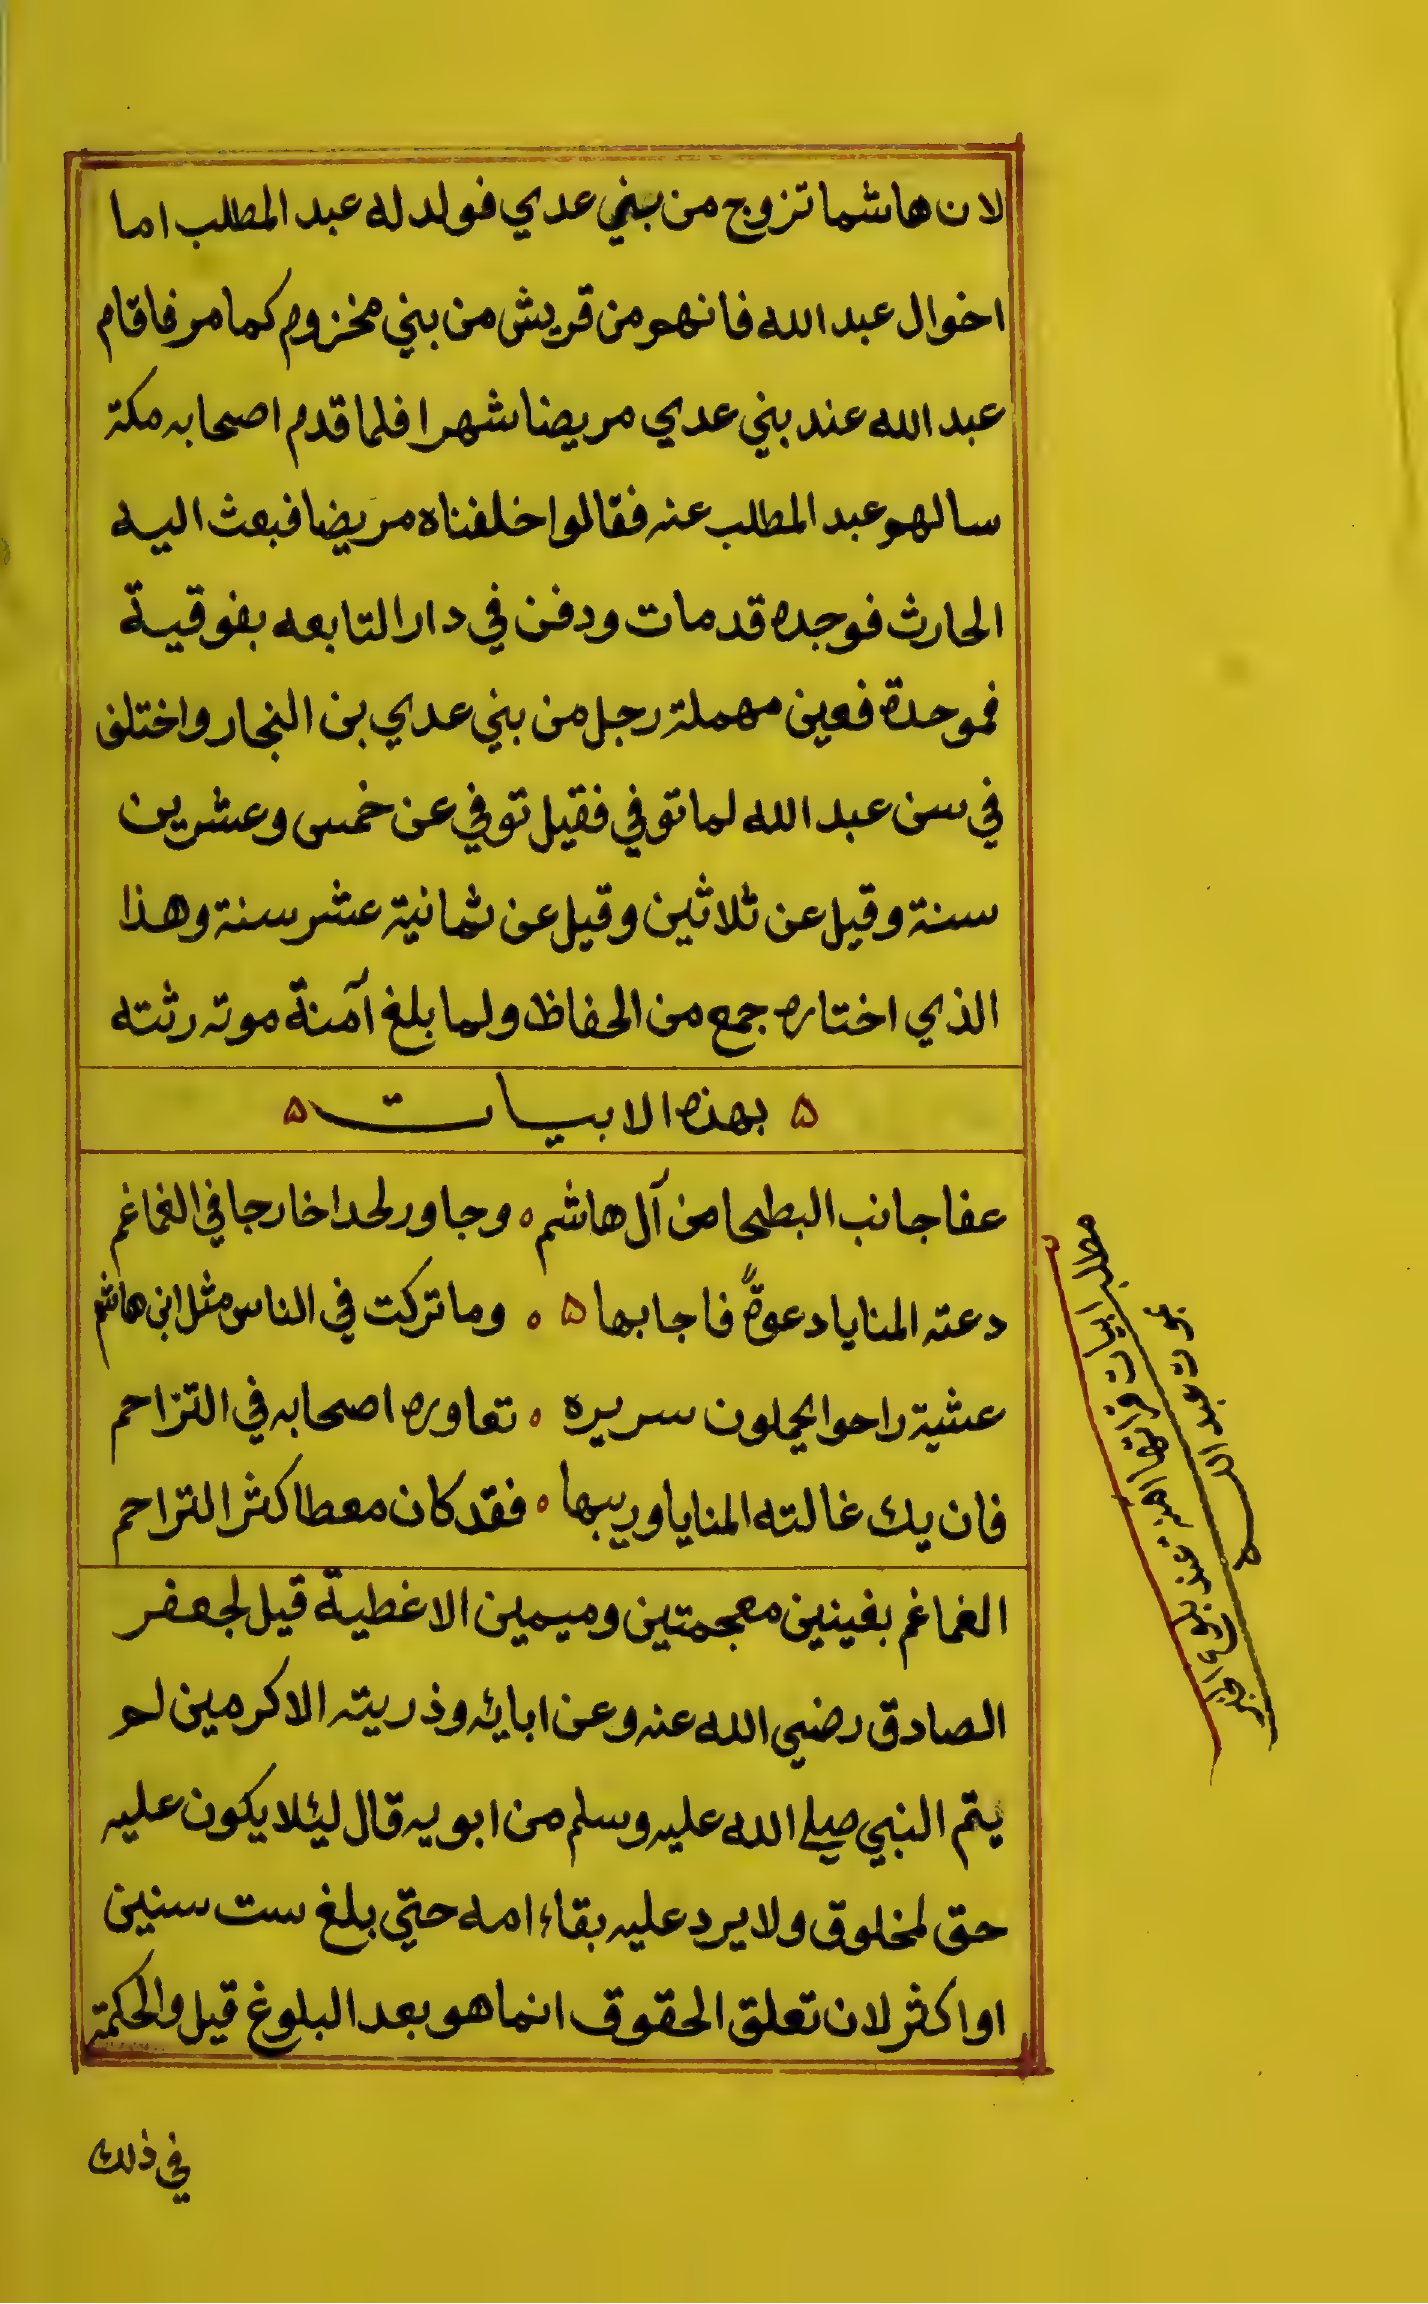 لان هاشما تزوج من بني عدي فولد له عبد المطلب اما
اخوال عبد الله فانهم من قريش من بني مخزوم كما مر فاقام
عبد الله عند بني عدي مريضا شهرا فلما قدم اصحابه مكة
سالهم عبد المطلب عنه فقالوا خلفناه مريضا فبعث اليه
الحارث فوجده قد مات ودفن في دار التابعه بفوقية
فموحدة فعين مهملة رجل من بني عدي بن النجار واختلف
في سن عبد الله لما توفي فقيل توفي عن خمس وعشرين
سنة وقيل عن ثلاثين وقيل عن ثمانية عشر سنة وهذا
الذي اختاره جمع من الحفاظ ولما بلغ آمنة موته رثته
۵ بهذه الابيات ۵
عفا جانب البطحا من آل هاشم ه وجاور لحدا خارجا في الغماغم
دعته المنايا دعوةً فاجابها ۵ ه وما تركت في الناس مثل ابن هاشم
عشية راحوا يحملون سريره ه تعاوره اصحابه في التزاحم
فان يك غالته المنايا وريبها ه فقد كان معطا كثر التراحم
الغماغم بغينين معجمتين وميمين الاغطية قيل لجعفر
الصادق رضي الله عنه وعن ابائه وذريته الاكرمين لم
يتم النبي صلى الله عليه وسلم من ابويه قال ليئلا يكون عليه
حق لمخلوق ولا يرد عليه بقاء امه حتى بلغ ست سنين
او اكثر لان تعلق الحقوق انما هو بعد البلوغ قيل والحكمة
في ذلك
مطلب ابيات عند بلوغ الخبر
بموت عبد الله